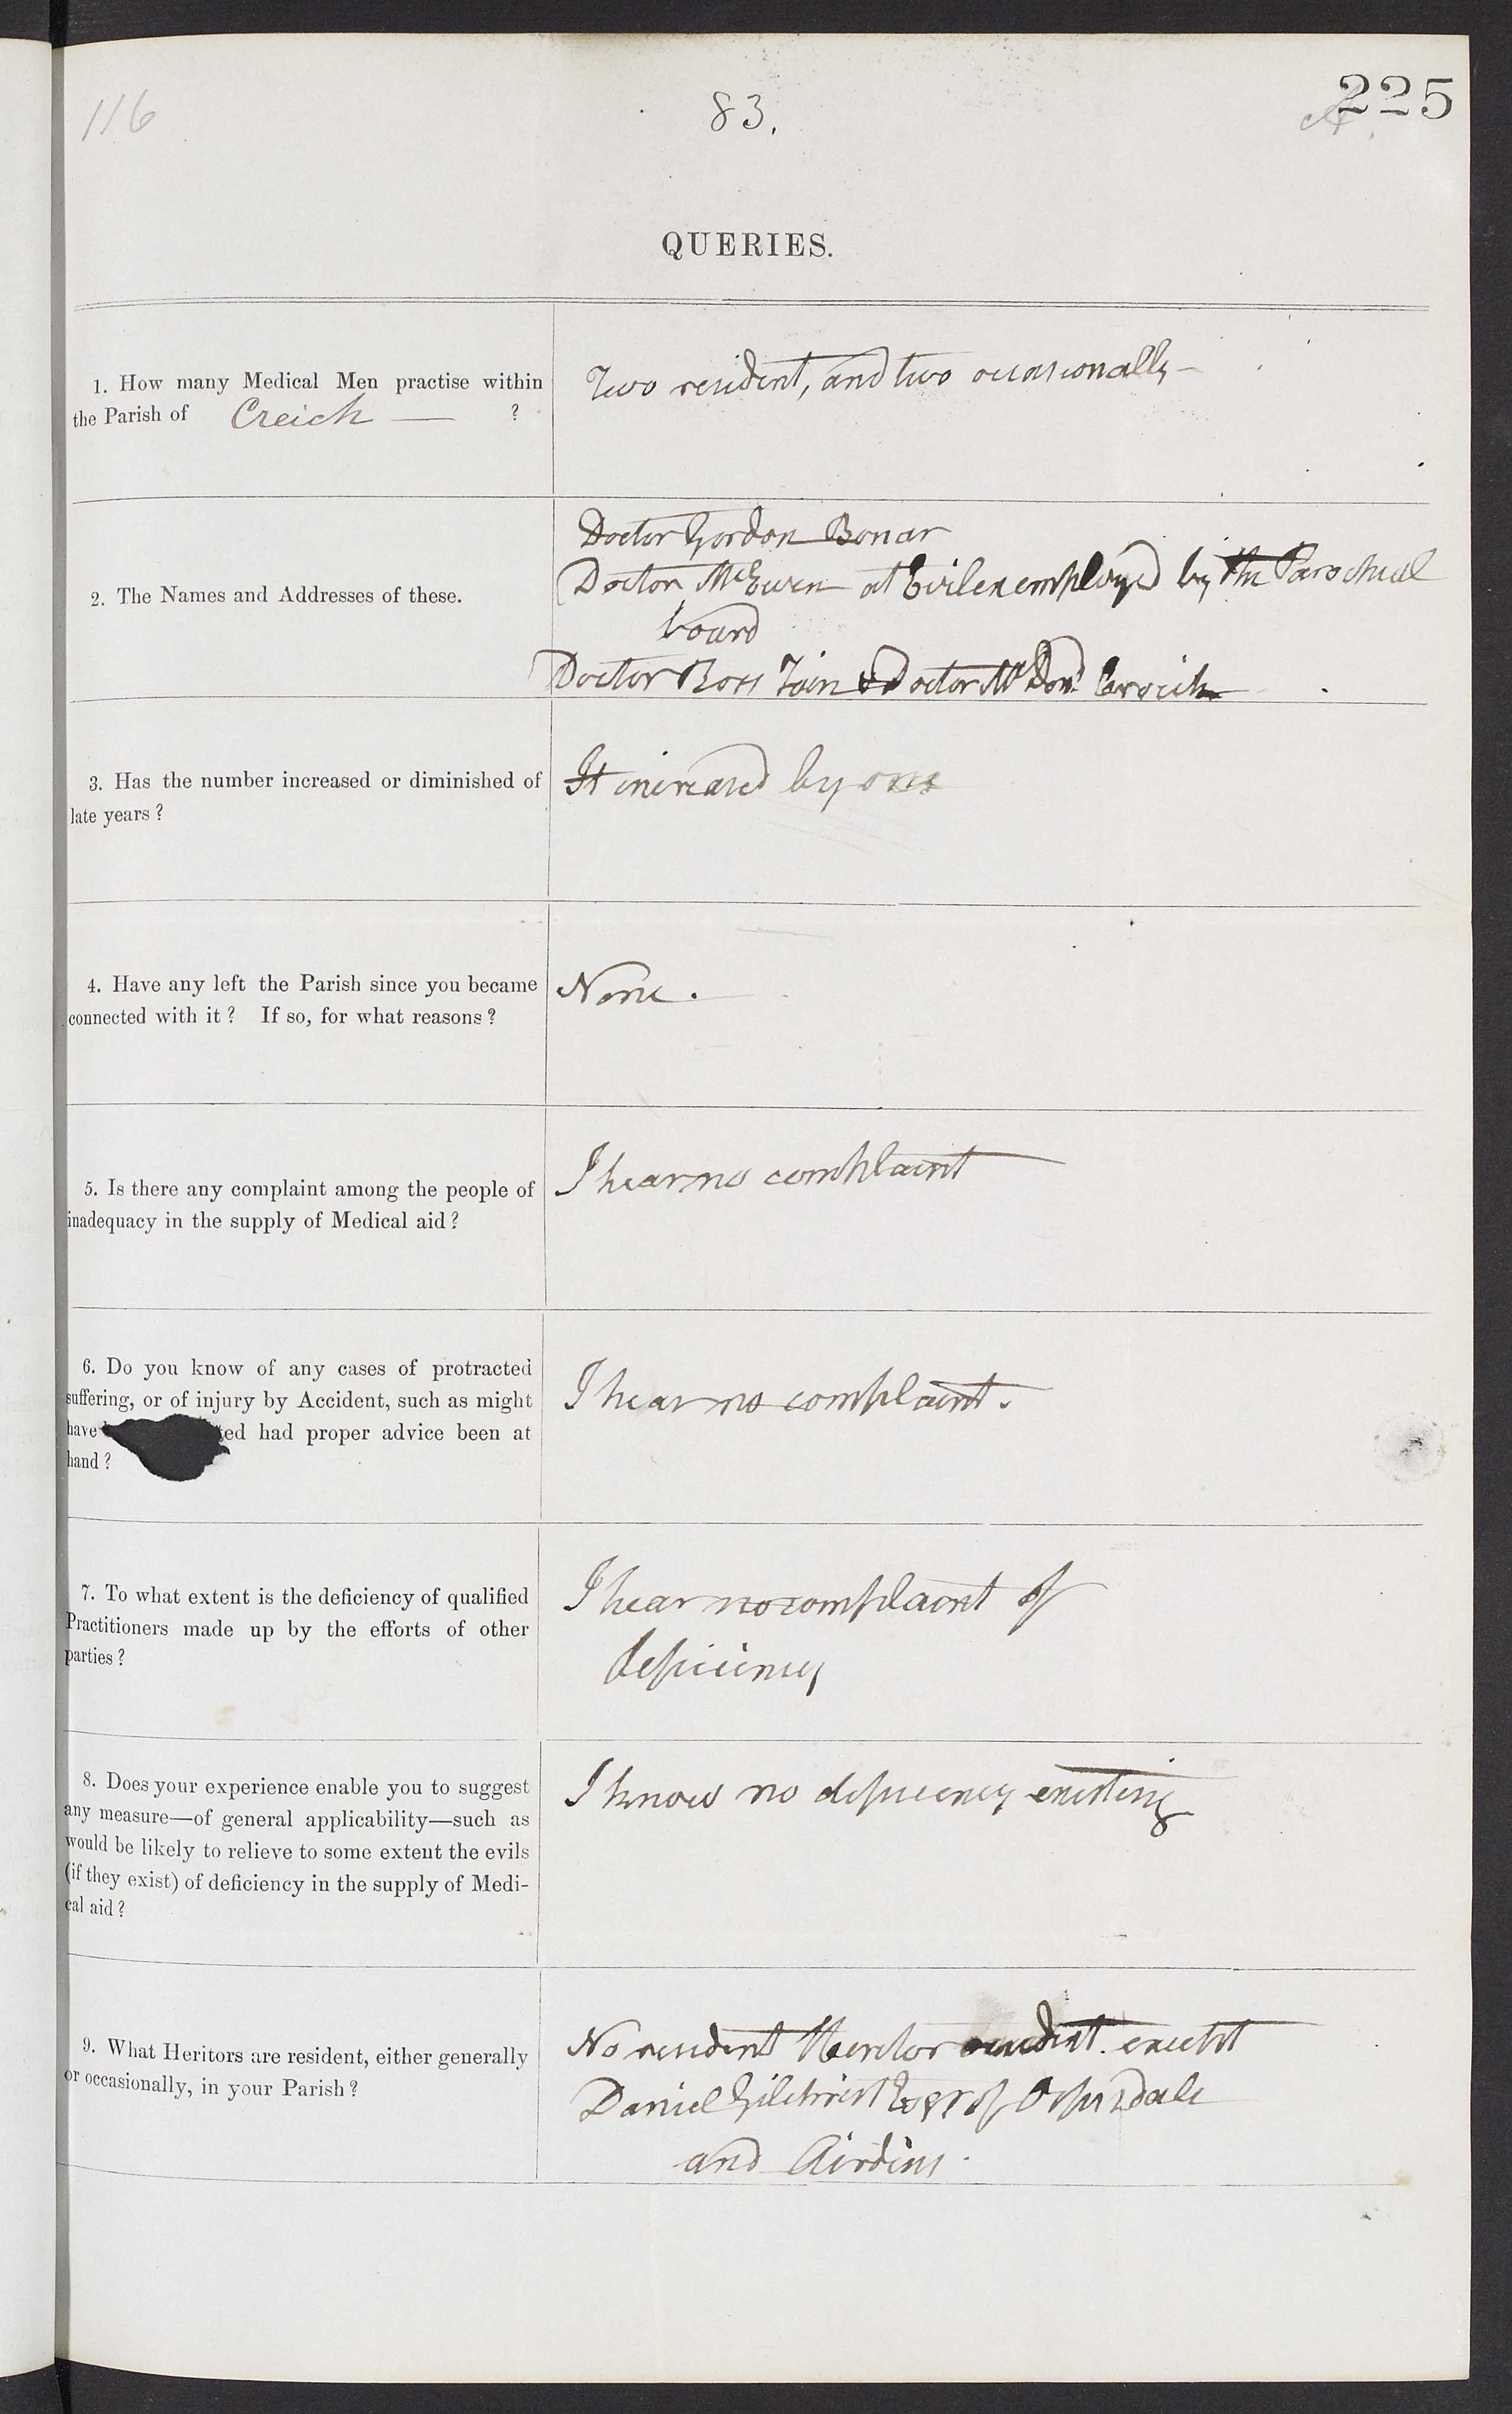 116
83.
225
QUERIES.
1. How many Medical Men practise within
the Parish of Creich — ?
Two resident, and two occasionally –
2. The Names and Addresses of these.
Doctor Gordon Bonar
Doctor McEwen at employed by the Parochial
board
Doctor Ross Tain & Doctor
3. Has the number increased or diminished of
late years ?
It increased by one
4. Have any left the Parish since you became
connected with it ? If so, for what reasons ?
None.
5. Is there any complaint among the people of
inadequacy in the supply of Medical aid ?
I hear no complaint
6. Do you know of any cases of protracted
suffering, or of injury by Accident, such as might
have ted had proper advice been at
hand ?
I hear no complaint.
7. To what extent is the deficiency of qualified
Practitioners made up by the efforts of other
parties ?
I hear no complaint of
deficiency
8. Does your experience enable you to suggest
any measure—of general applicability—such as
would be likely to relieve to some extent the evils
(if they exist) of deficiency in the supply of Medi-
cal aid ?
I know no deficiency existing
9. What Heritors are resident, either generally
or occasionally, in your Parish ?
No resident Heritor resident. except
Daniel Gilchrist Esqr of Ospisdale
and Airdens.